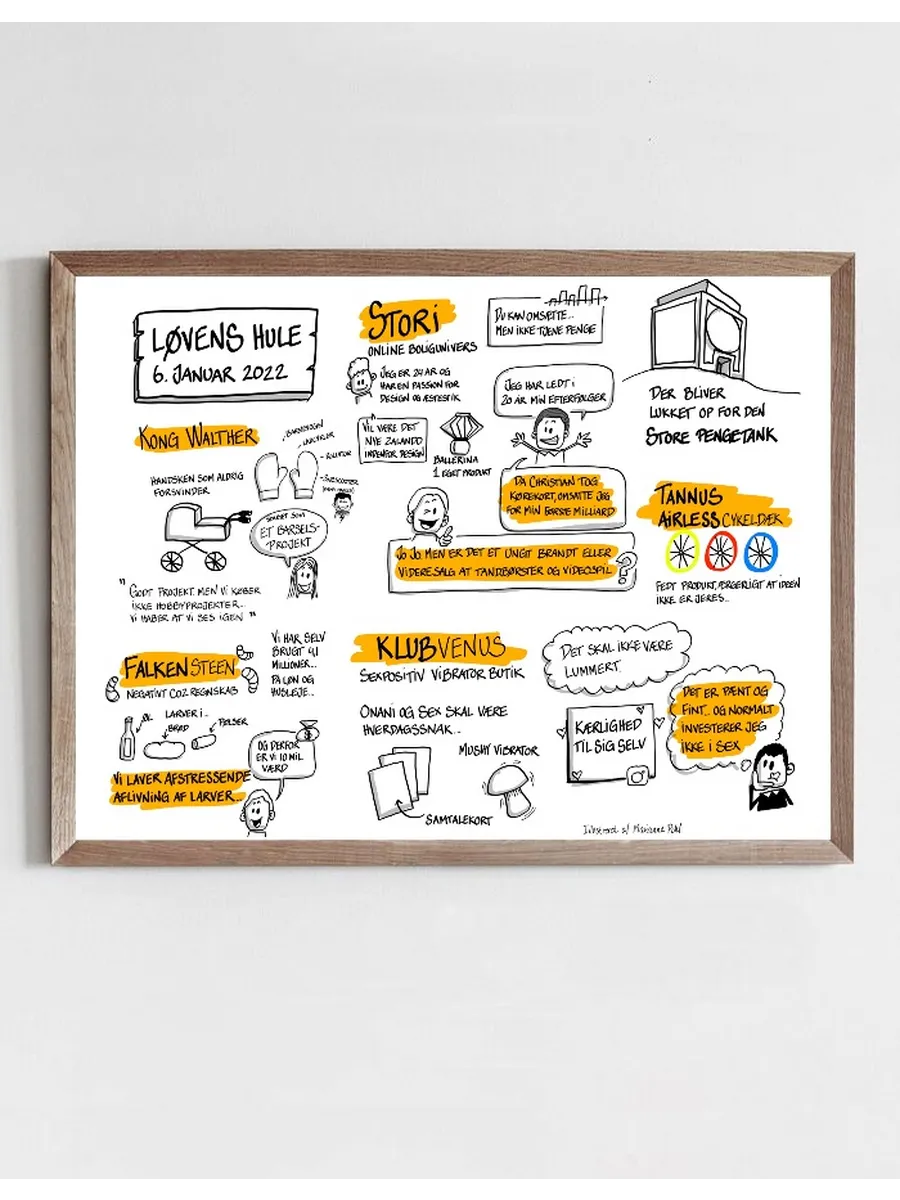 LØVENS HULE
6. JANUAR 2022
STORI
ONLINE BOLIGUNIVERS
JEG ER 24 ÅR OG
HAR EN PASSION FOR
DESIGN OG ÆSTESTIK
DU KAN OMSÆTTE..
MEN IKKE TJENE PENGE
JEG HAR LEDT I
20 ÅR MIN EFTERFØLGER
VIL VÆRE DET
NYE ZALANDO
INDENFOR DESIGN
BALLERINA
1 EGET PRODUKT
DA CHRISTIAN TOG
KØREKORT, OMSATTE JEG
FOR MIN FØRSTE MILLIARD
JO JO MEN ER DET ET UNGT BRANDT ELLER
VIDERESALG AT TANDBØRSTER OG VIDEOSPIL
?
DER BLIVER
LUKKET OP FOR DEN
STORE PENGETANK
KONG WALTHER
- BARNEVOGN
- ROLLATOR
HANDSKEN SOM ALDRIG
FORSVINDER
STARTET SOM
ET BARSELS-
PROJEKT
" GODT PROJEKT, MEN VI KØBER
IKKE HOBBYPROJEKTER..
VI HÅBER AT VI SES IGEN "
TANNUS
AIRLESS CYKELDÆK
FEDT PRODUKT, ÆRGERLIGT AT IDEEN
IKKE ER JERES..
FALKENSTEEN
NEGATIVT CO2 REGNSKAB
LARVER I..
ØL
BRØD
PØLSER
VI HAR SELV
BRUGT 4,1
MILLIONER...
PÅ LØN OG
HUSLEJE..
OG DERFOR
ER VI 10 MIL
VÆRD
VI LAVER AFSTRESSENDE
AFLIVNING AF LARVER...
KLUB VENUS
SEXPOSITIV VIBRATOR BUTIK
ONANI OG SEX SKAL VÆRE
HVERDAGSSNAK..
MUSHY VIBRATOR
SAMTALEKORT
DET SKAL IKKE VÆRE
LUMMERT.
KÆRLIGHED
TIL SIG SELV
DET ER PÆNT OG
FINT.. OG NORMALT
INVESTERER JEG
IKKE I SEX
Illustreret af Marianne